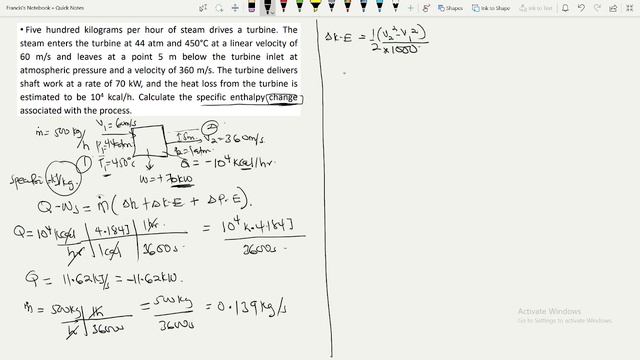 Francis's Notebook • Quick Notes
Shapes
Ink to Shape
Ink to Text
• Five hundred kilograms per hour of steam drives a turbine. The
steam enters the turbine at 44 atm and 450°C at a linear velocity of
60 m/s and leaves at a point 5 m below the turbine inlet at
atmospheric pressure and a velocity of 360 m/s. The turbine delivers
shaft work at a rate of 70 kW, and the heat loss from the turbine is
estimated to be 10⁴ kcal/h. Calculate the specific enthalpy change
associated with the process.
V₁ = 60m/s
ṁ = 500kg/h
P₁=44atm
T₁=450°C
①
↑5m
②
V₂=360m/s
P₂=1atm
Q = -10⁴kcal/hr.
W=+70kW
kJ/kg.
Q-Ws = ṁ(Δh + ΔK·E + ΔP.E)
Q=10⁴kcal | 4.184J | 1hr = 10⁴K.4184J
hr | 1cal | 3600s 3600s
Q = 11.62kJ/s = -11.62kW.
ṁ = 500kg | 1h = 500kg = 0.139kg/s
h | 3600s 3600s
ΔK·E = 1(V₂²-V₁²)
2 ×1000
Activate Windows
Go to Settings to activate Windows.